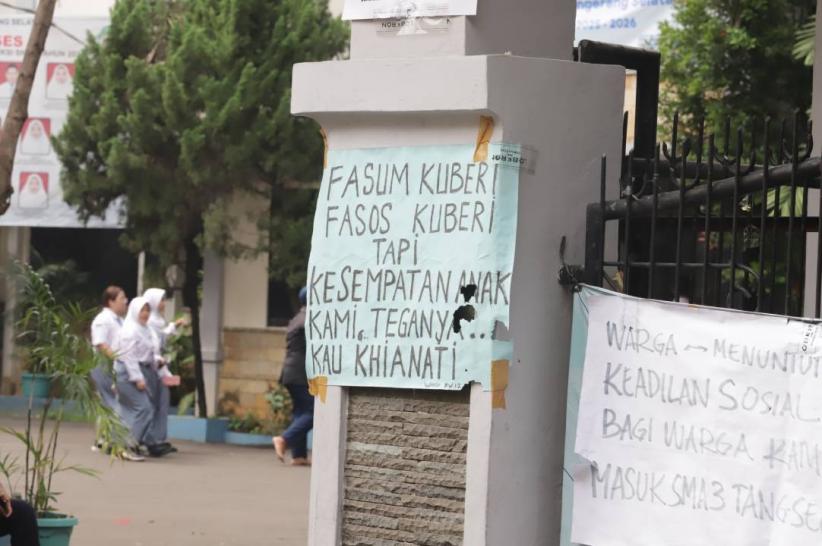 FASUM KUBERI
FASOS KUBERI
TAPI
KESEMPATAN ANAK
KAMI, TEGANYA...
KAU KHIANATI.
WARGA MENUNTUT
KEADILAN SOSIAL
BAGI WARGA KAMI
MASUK SMA3 TANGSE
2025 - 2026